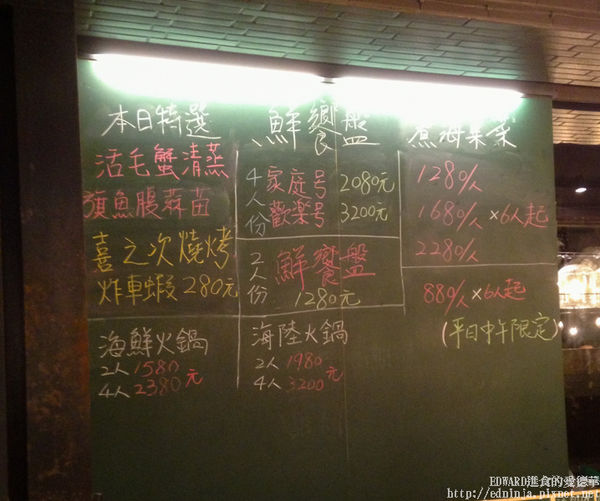 本日特選
活毛蟹清蒸
旗魚腸蒜苗
喜之次燒烤
炸車蝦280元
海鮮火鍋
2人1580
4人2380元
鮮饗盤
4人份
家庭号 2080元
歡樂号 3200元
2人份
鮮饗盤
1280元
海陸火鍋
2人1980
4人3200元
1280/人
1680/人×6人起
2280/人
880/人×6人起
(平日中午限定)
EDWARD進食的愛德華
http://edninja.pixnet.net